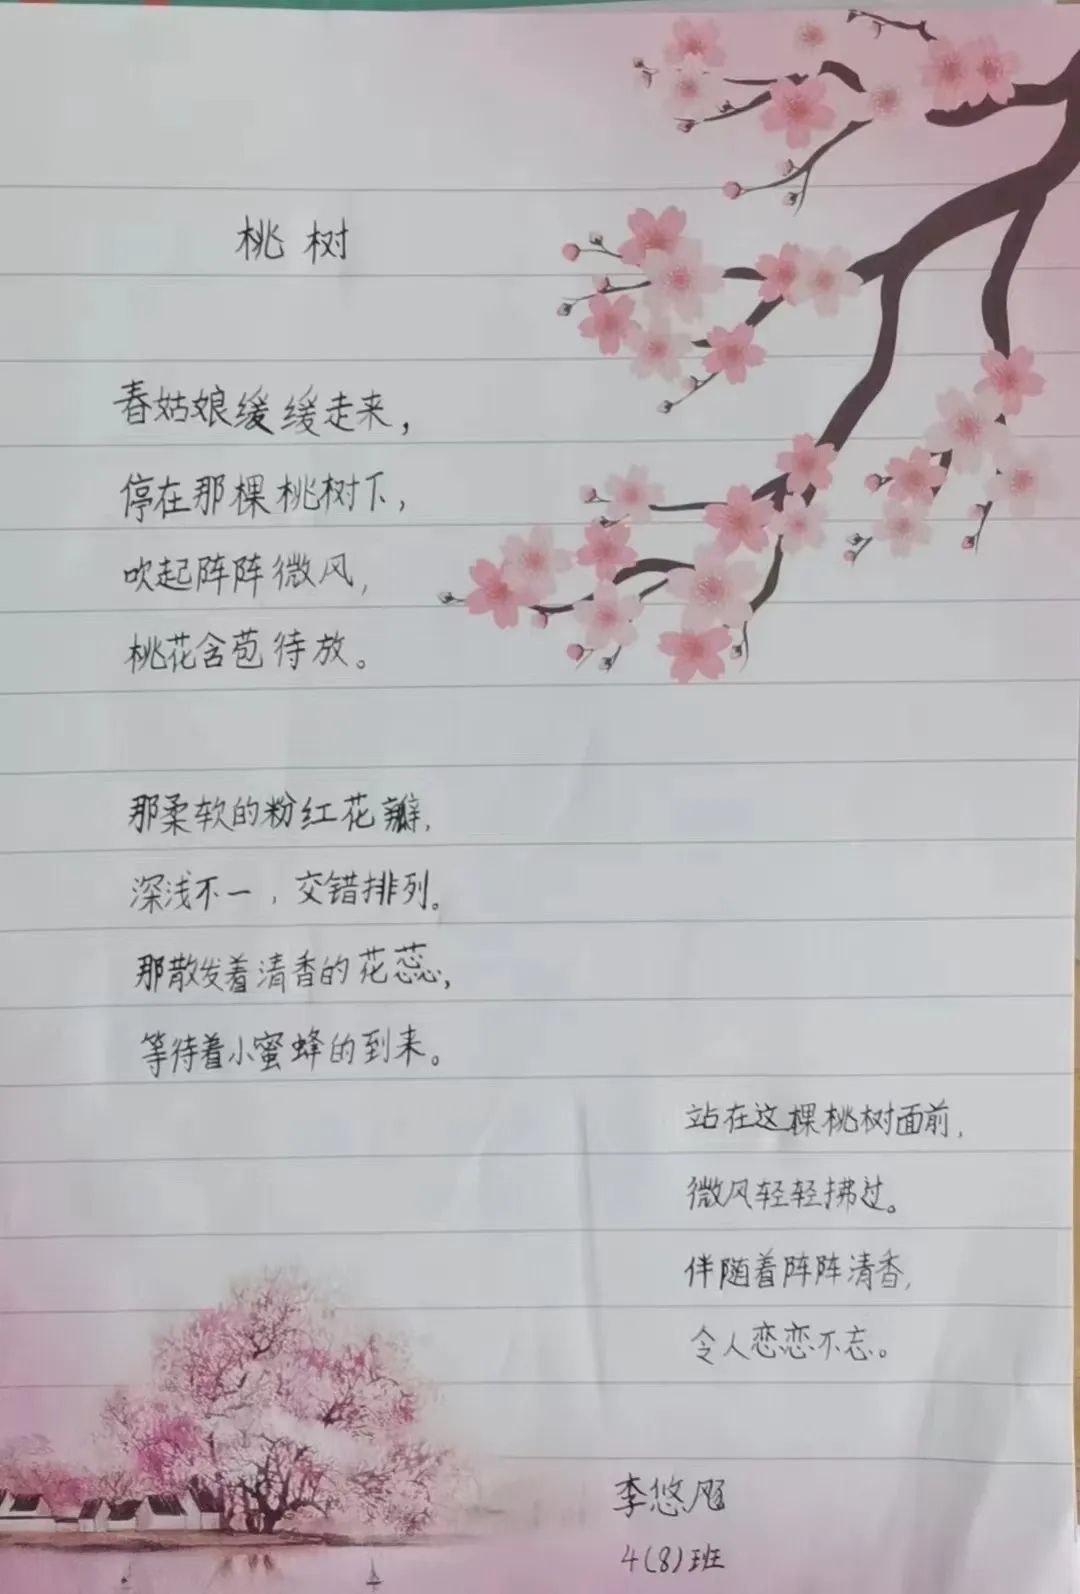 桃树
春姑娘缓缓走来，
停在那棵桃树下，
吹起阵阵微风，
桃花含苞待放。
那柔软的粉红花瓣，
深浅不一，交错排列。
那散发着清香的花蕊，
等待着小蜜蜂的到来。
站在这棵桃树面前，
微风轻轻拂过。
伴随着阵阵清香，
令人恋恋不忘。
李悠
4(8)班